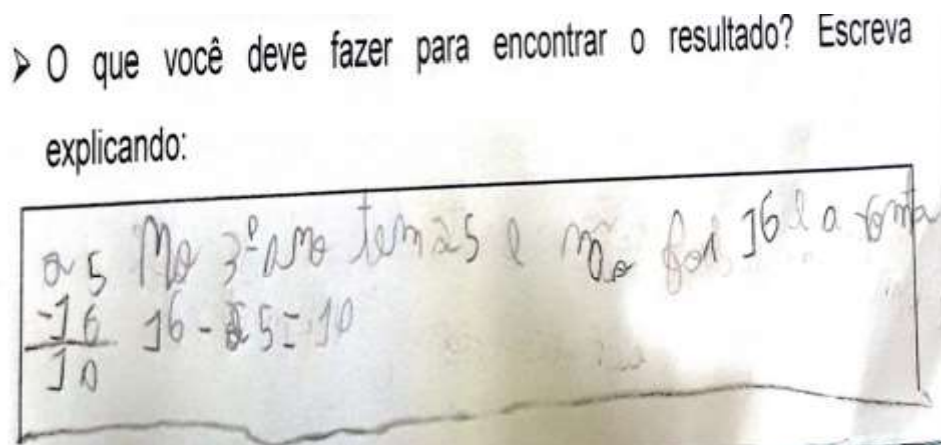 ➢ O que você deve fazer para encontrar o resultado? Escreva
explicando:
25 No 3º ano tem 25 e não foi 16 e a conta
-16 16-25=10
10